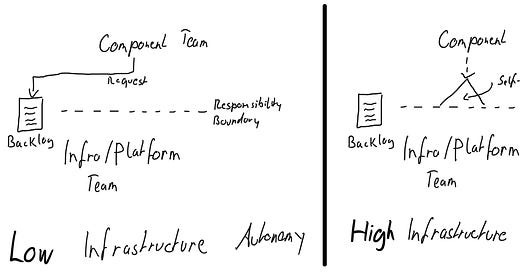 Component Team
Request
Responsibility
Boundary
Backlog
Infra/Platform
Team
Low Infrastructure Autonomy
Component
Self-
Backlog
Infra/Platform
Team
High Infrastructure